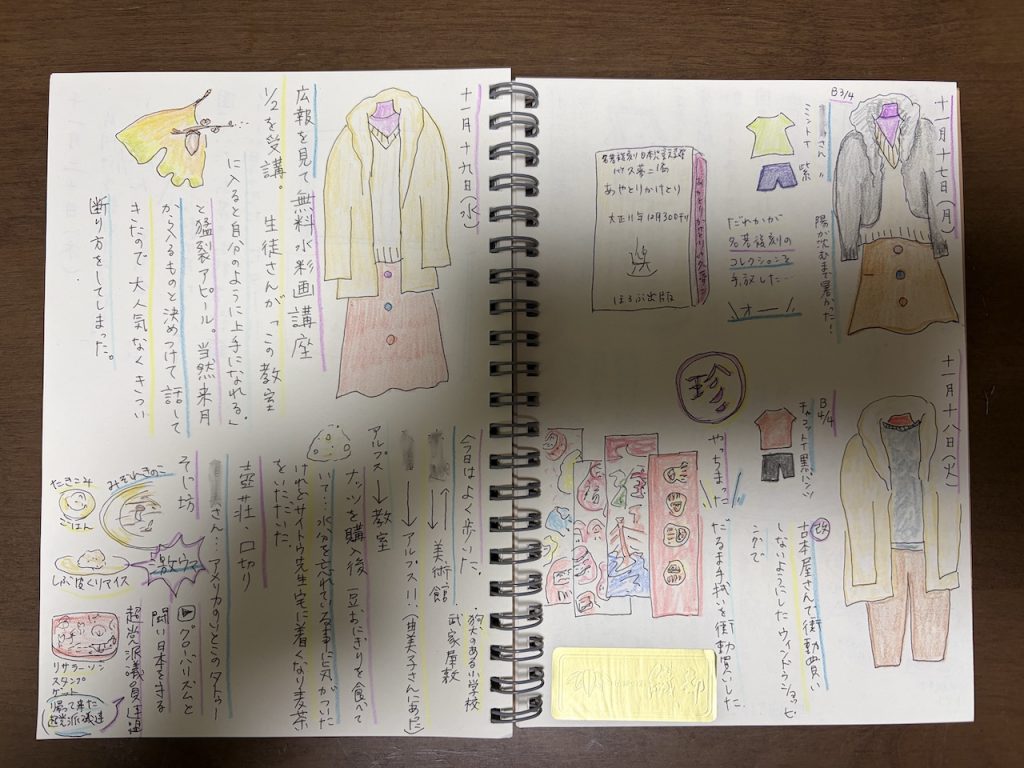 十一月十七日(月)
B3/4
さん
ミントT
紫〃
陽が沈むまで暑かった!
だれかが
名著復刻の
コレクションを
手放した…
オー!
あやとりかけとり
ほるぷ出版
十一月十八日(火)
B4/4
黒パンツ
珍
やっちまった
古本屋さんで衝動買い
しないようにしたウィンドウショッピ
ングで
だるま手拭いを衝動買いした
十一月十九日(水)
広報を見て無料水彩画講座
1/2を受講。生徒さんが「この教室
に入ると自分のように上手になれる。」
と猛烈アピール。当然来月
から入るものと決めつけて話して
きたので大人気なくきつい
断り方をしてしまった。
今日はよく歩いた。
美術館
狗犬のある小学校
武家屋敷
→アルプス…(由美子さんにあった)
アルプス→教室
ナッツを購入後一豆おにぎりを食べて
いて…水分を忘れている事に気がついた
けれどサイトウ先生宅に着くなり麦茶
をいただいた。
壺荘、口切り
さん…アメリカのいとこのタトゥー
グローバリズムと
闘い日本を守る
超党派議員連盟
そじ坊
たきこみ
ごはん
みぞれきのこ
激ウマ
しぶ皮くりアイス
リサラーソン
スタンプ
ゲット
帰って来た
超党派議連